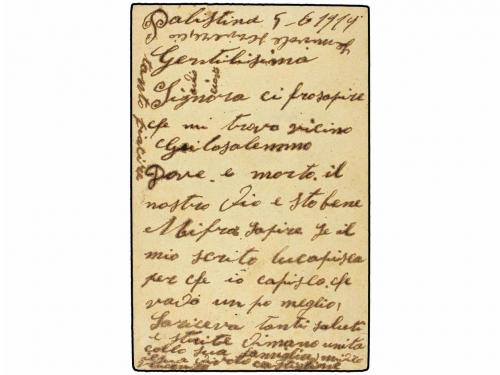 Palistina 5-6 1919
Gentilisima
Signora ci fo sapire
che mi trovo vicino
Geilosalemmo
Dove. e morto. il
nostro Dio e sto bene
Mi fra sapire se il
mio scrito lo capisca
per che io capisco. che
vado un po meglio,
La riceva tanti saluti
e strite di mano unita
collo sua famiglia,
tanto